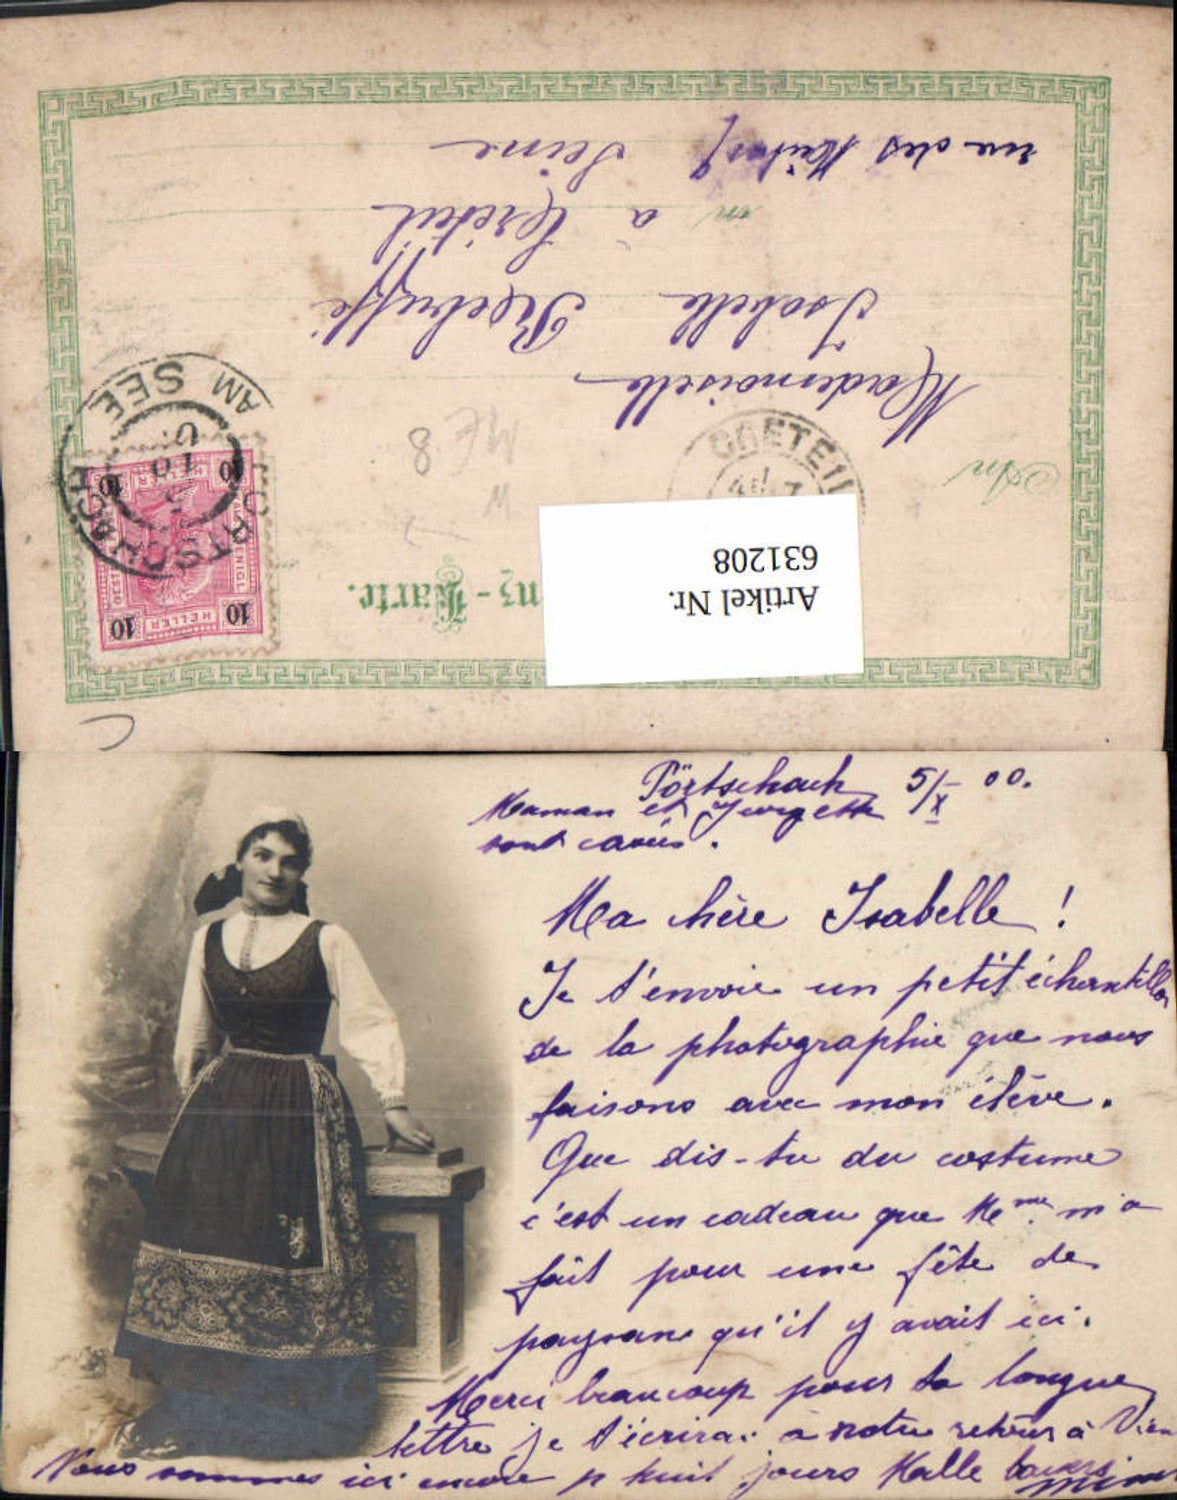 Mademoiselle
Isabelle
à Créteil
rue des Seine
An
in
nz-Karte.
Artikel Nr.
631208
CRETEIL
PORTSCHACH
AM SEE
5
10
10 HELLER 10
10 HELLER 10
ME 8
Pörtschach 5/X 00.
Maman et Georgette
sont
Ma chère Isabelle !
Je t'envoie un petit échantillon
de la photographie que nous
faisons avec mon élève.
Que dis-tu du costume
c'est un cadeau que Mme m'a
fait pour une fête de
paysans qu'il y avait ici.
Merci beaucoup pour ta longue
lettre je t'écrirai à notre retour à Vien
Nous sommes ici encore p huit jours Mille baisers